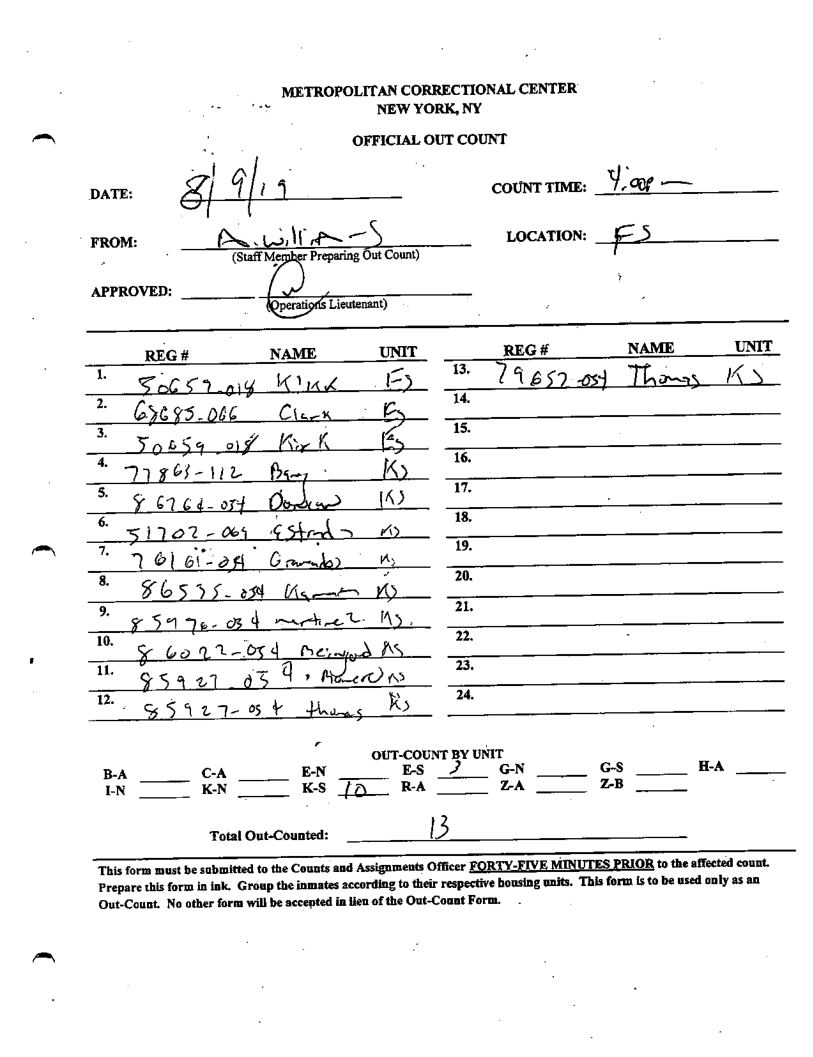 METROPOLITAN CORRECTIONAL CENTER
NEW YORK, NY
OFFICIAL OUT COUNT
DATE: 8/9/19 COUNT TIME: 4:00P
FROM: A. WilliA-S LOCATION: FS
(Staff Member Preparing Out Count)
APPROVED:
(Operations Lieutenant)
REG # NAME UNIT REG # NAME UNIT
1. 50659-018 Kirk ES 13. 79652-054 Thomas KS
2. 68685-066 Clark ES 14.
3. 50659-018 Kirk ES 15.
4. 77863-112 KS 16.
5. 86764-054 KS 17.
6. 51702-069 Estrada KS 18.
7. 76161-054 Granados KS 19.
8. 86535-054 KS 20.
9. 85976-054 martinez KS. 21.
10. 86022-054 KS 22.
11. 85927 054 KS 23.
12. 85927-054 thomas KS 24.
OUT-COUNT BY UNIT
B-A C-A E-N E-S 3 G-N G-S H-A
I-N K-N K-S 10 R-A Z-A Z-B
Total Out-Counted: 13
This form must be submitted to the Counts and Assignments Officer FORTY-FIVE MINUTES PRIOR to the affected count.
Prepare this form in ink. Group the inmates according to their respective housing units. This form is to be used only as an
Out-Count. No other form will be accepted in lieu of the Out-Count Form.